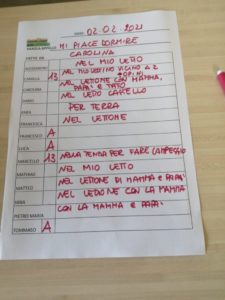 02.02.2021
MI PIACE DORMIRE
CAROLINA
NEL MIO LETTO
CAMILLA 13 NEL MIO LETTINO VICINO A 2
NEL LETTONE CON MAMMA,
CAROLINA PAPÀ E TATO
DARIO NEL LETTO CASTELLO
EMMA PER TERRA
NEL LETTONE
FRANCESCA A
LUCA A
MARCELLO 13 NELLA TENDA PER FARE CAMPEGGIO
MATHIAS NEL MIO LETTO
MATTEO NEL LETTONE DI MAMMA E PAPÀ
NINA NEL LETTONE CON LA MAMMA
PIETRO MARIA CON LA MAMMA E PAPÀ
TOMMASO A